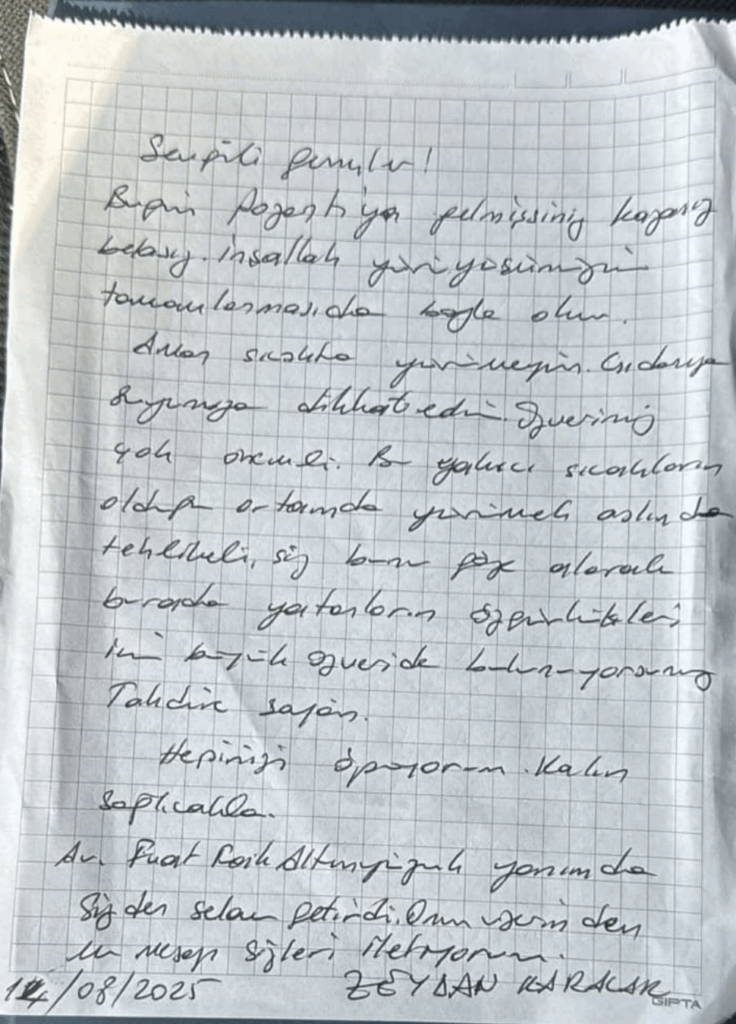 Sevgili gençler!
Bugün Pozantı'ya gelmişsiniz kazasız
belasız. inşallah yürüyüşünüzün
tamamlanması da böyle olur.
Aman sıcakta yürümeyin. Gıdanıza
suyunuza dikkat edin. Özveriniz
çok önemli. Bu yakıcı sıcakların
olduğu ortamda yürümek aslında
tehlikeli, siz bunu göze alarak
burada yatanların özgürlükleri
için büyük özveride bulunuyorsunuz
Takdire şayan.
Hepinizi öpüyorum. Kalın
sağlıcakla.
Av. Fuat Altunyüzük yanımda
Sizden selam getirdi. Onun üzerinden
bu mesajı sizlere iletiyorum.
14/08/2025 ZEYDAN KARALAR
GIPTA